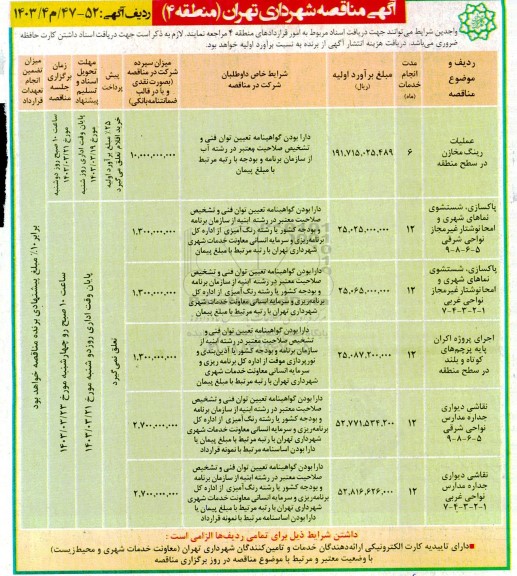 آگهی مناقصه شهرداری تهران (منطقه ۴) ردیف آگهی: ۵۲-۴۷/م/۱۴۰۳/۴
واجدین شرایط می‌توانند جهت دریافت اسناد مربوط به امور قراردادهای منطقه ۴ مراجعه نمایند. لازم به ذکر است جهت دریافت اسناد داشتن کارت حافظه
ضروری می‌باشد. دریافت هزینه انتشار آگهی از برنده به نسبت برآورد اولیه خواهد بود.
ردیف و موضوع مناقصه
مدت انجام خدمات (ماه)
مبلغ برآورد اولیه (ریال)
شرایط خاص داوطلبان شرکت در مناقصه
میزان سپرده شرکت در مناقصه (بصورت نقدی و یا در قالب ضمانتنامه بانکی)
پیش پرداخت
مهلت تحویل اسناد و تسلیم پیشنهاد
زمان برگزاری جلسه مناقصه
میزان تضمین انجام تعهدات قرارداد
عملیات رینگ مخازن در سطح منطقه
۶
۱۹۱,۷۱۵,۰۲۵,۴۸۹
دارا بودن گواهینامه تعیین توان فنی و
تشخیص صلاحیت معتبر در رشته آب
از سازمان برنامه و بودجه با رتبه مرتبط
با مبلغ پیمان
۱۰,۰۰۰,۰۰۰,۰۰۰
۲۵٪ مبلغ برآورد اولیه
خرید اقلام تعلق می‌گیرد
پایان وقت اداری روز شنبه
مورخ ۱۴۰۳/۰۳/۱۹
ساعت ۱۰ صبح روز دوشنبه
مورخ ۱۴۰۳/۰۳/۲۱
برابر ۱۰٪ مبلغ پیشنهادی برنده مناقصه خواهد بود
پاکسازی، شستشوی
نماهای شهری و
امحا نوشتار غیرمجاز
نواحی شرقی
۵-۶-۸-۹
۱۲
۲۵,۰۲۵,۰۰۰,۰۰۰
دارا بودن گواهینامه تعیین توان فنی و تشخیص
صلاحیت معتبر در رشته ابنیه از سازمان برنامه
و بودجه کشور یا رشته رنگ آمیزی از اداره کل
برنامه‌ریزی و سرمایه انسانی معاونت خدمات شهری
شهرداری تهران با رتبه مرتبط با مبلغ پیمان
۱,۳۰۰,۰۰۰,۰۰۰
تعلق نمی‌گیرد
پایان وقت اداری روز دو شنبه مورخ ۱۴۰۳/۰۳/۲۱
ساعت ۱۰ صبح رو چهارشنبه مورخ ۱۴۰۳/۰۳/۲۳
پاکسازی، شستشوی
نماهای شهری و
امحا نوشتار غیرمجاز
نواحی غربی
۱-۲-۳-۴-۷
۱۲
۲۵,۰۶۵,۰۰۰,۰۰۰
دارا بودن گواهینامه تعیین توان فنی و تشخیص
صلاحیت معتبر در رشته ابنیه از سازمان برنامه
و بودجه کشور یا رشته رنگ آمیزی از اداره کل
برنامه‌ریزی و سرمایه انسانی معاونت خدمات شهری
شهرداری تهران با رتبه مرتبط با مبلغ پیمان
۱,۳۰۰,۰۰۰,۰۰۰
اجرای پروژه اکران
پایه پرچم‌های
کوتاه و بلند
در سطح منطقه
۱۲
۲۵,۰۸۷,۲۰۰,۰۰۰
دارا بودن گواهینامه تعیین توان فنی و
تشخیص صلاحیت معتبر در رشته ابنیه از
سازمان برنامه و بودجه کشور یا آذین‌بندی و
نورپردازی موقت از اداره کل برنامه ریزی و
سرمایه انسانی معاونت خدمات شهری
شهرداری تهران با رتبه مرتبط با مبلغ پیمان
۱,۳۰۰,۰۰۰,۰۰۰
نقاشی دیواری
جداره مدارس
نواحی شرقی
۵-۶-۸-۹
۱۲
۵۲,۷۷۱,۵۳۴,۲۰۰
دارا بودن گواهینامه تعیین توان فنی و تشخیص
صلاحیت معتبر در رشته ابنیه از سازمان برنامه
و بودجه کشور یا رشته رنگ آمیزی از اداره کل
برنامه ریزی و سرمایه انسانی معاونت خدمات شهری
شهرداری تهران با رتبه مرتبط با مبلغ پیمان یا
دارا بودن اساسنامه مرتبط با نمونه قرارداد
۲,۷۰۰,۰۰۰,۰۰۰
نقاشی دیواری
جداره مدارس
نواحی غربی
۱-۲-۳-۴-۷
۱۲
۵۲,۸۱۶,۶۲۶,۰۰۰
دارا بودن گواهینامه تعیین توان فنی و تشخیص
صلاحیت معتبر در رشته ابنیه از سازمان برنامه
و بودجه کشور یا رشته رنگ آمیزی از اداره کل
برنامه‌ریزی و سرمایه انسانی معاونت خدمات شهری
شهرداری تهران با رتبه مرتبط با مبلغ پیمان یا
دارا بودن اساسنامه مرتبط با نمونه قرارداد
۲,۷۰۰,۰۰۰,۰۰۰
داشتن شرایط ذیل برای تمامی ردیف‌ها الزامی است :
■ دارای تاییدیه کارت الکترونیکی ارائه‌دهندگان خدمات و تامین‌کنندگان شهرداری تهران (معاونت خدمات شهری و محیط‌زیست)
با وضعیت معتبر و مرتبط با موضوع مناقصه در روز برگزاری مناقصه